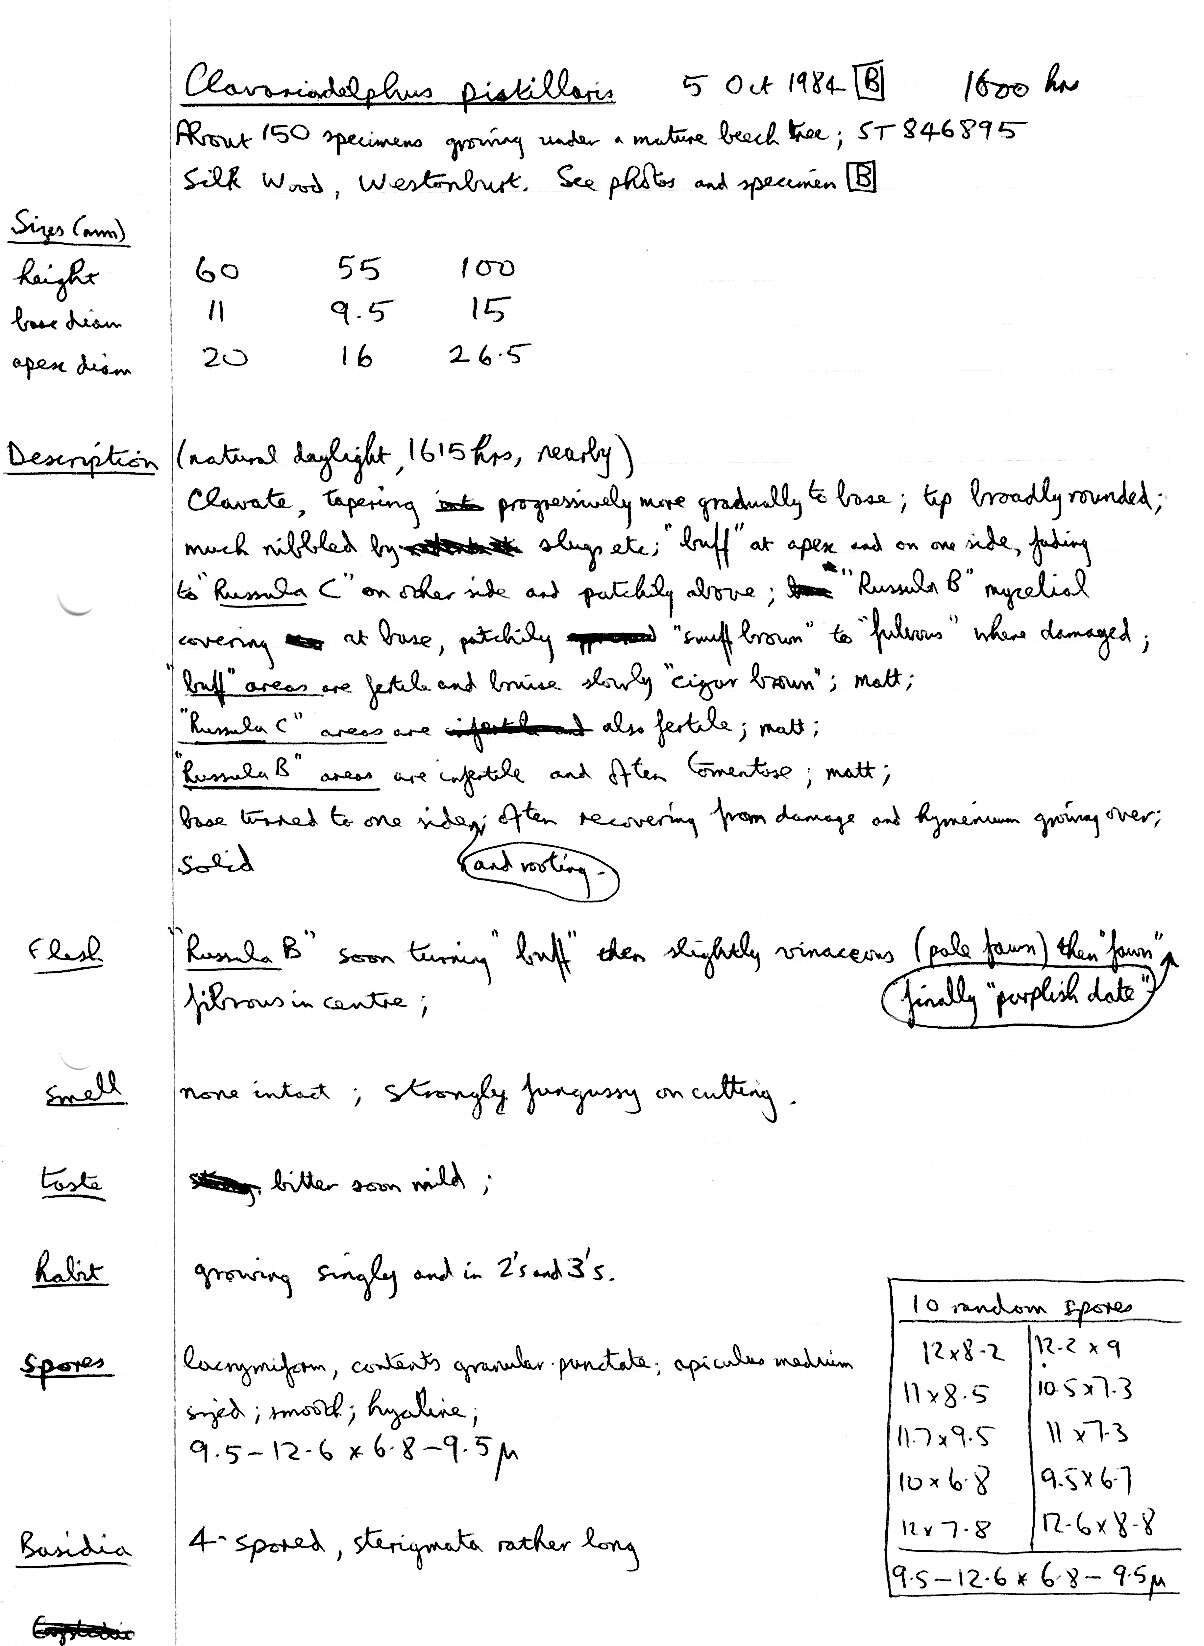 Clavariadelphus pistillaris 5 Oct 1984 B 1600 hrs
About 150 specimens growing under a mature beech tree; ST 846895
Silk Wood, Westonbirt. See photos and specimen B
Sizes (mm)
height 60 55 100
base diam 11 9.5 15
apex diam 20 16 26.5
Description (natural daylight, 1615 hrs, nearby)
Clavate, tapering progressively more gradually to base; tip broadly rounded;
much nibbled by slugs etc; "buff" at apex and on one side, fading
to "Russula C" on other side and patchily above; "Russula B" mycelial
covering at base, patchily "snuff brown" to "fulvous" where damaged;
"buff" areas are fertile and bruise slowly "cigar brown"; matt;
"Russula C" areas are also fertile; matt;
"Russula B" areas are infertile and often tomentose; matt;
base turned to one side; often recovering from damage and hymenium growing over;
solid and rooting.
Flesh "Russula B" soon turning "buff" then slightly vinaceous (pale fawn) then "fawn"
fibrous in centre; finally "purplish date"
Smell none intact; strongly fungussy on cutting.
taste bitter soon mild;
habit growing singly and in 2's and 3's.
Spores lacrymiform, contents granular-punctate; apiculus medium
sized; smooth; hyaline;
9.5-12.6 x 6.8-9.5µ
Basidia 4-spored, sterigmata rather long
10 random spores
12x8.2 12.2x9
11x8.5 10.5x7.3
11.7x9.5 11x7.3
10x6.8 9.5x6.7
12x7.8 12.6x8.8
9.5-12.6 x 6.8-9.5µ